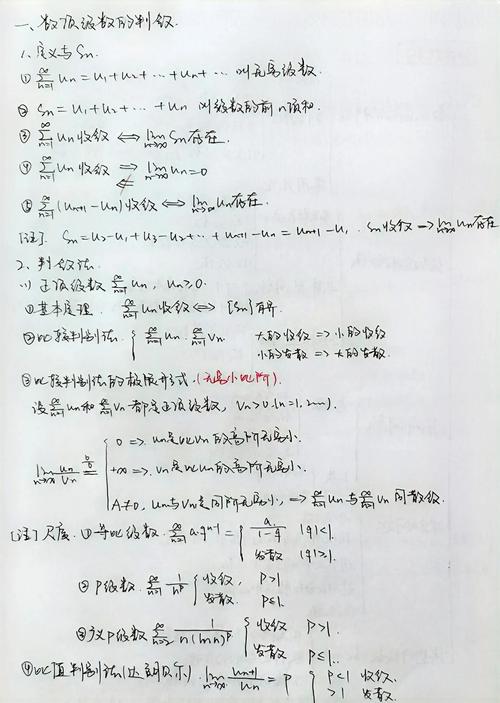 一、数项级数的判敛.
1. 定义与Sn.
① ∑_{n=1}^∞ un = u1+u2+…+un+… 叫无穷级数.
② Sn = u1+u2+…+un 叫级数的前n项和.
③ ∑_{n=1}^∞ un 收敛 ⟺ lim_{n→∞} Sn 存在.
④ ∑_{n=1}^∞ un 收敛 ⟹ lim_{n→∞} un = 0
⇍
⑤ ∑_{n=1}^∞ (u_{n+1} - un) 收敛 ⟺ lim_{n→∞} un 存在.
[注]. Sn = u2-u1+u3-u2+…+u_{n+1}-un = u_{n+1}-u1. Sn收敛 → lim_{n→∞} un存在
2. 判敛法.
(1) 正项级数 ∑_{n=1}^∞ un, un≥0.
①基本原理. ∑_{n=1}^∞ un 收敛 ⟺ {Sn}有界.
②比较判别法. { ∑_{n=1}^∞ un. ∑_{n=1}^∞ vn 大的收敛 ⟹ 小的收敛
小的发散 ⟹ 大的发散.
③比较判别法的极限形式. (无穷小比阶).
设 ∑_{n=1}^∞ un 和 ∑_{n=1}^∞ vn 都是正项级数, vn>0.(n=1.2…).
lim_{n→∞} un/vn =^{0/0} { 0 ⟹ un是比vn的高阶无穷小.
+∞ ⟹ vn是比un的高阶无穷小.
A≠0, un与vn是同阶无穷小, ⟹ ∑_{n=1}^∞ un与∑_{n=1}^∞ vn 同敛散.
[注] 尺度. ①等比级数. ∑_{n=1}^∞ a·q^{n-1} = { a/(1-q) |q|<1.
发散 |q|≥1.
②P级数. ∑_{n=1}^∞ 1/n^p { 收敛, p>1
发散. p≤1.
③广义P级数 ∑_{n=2}^∞ 1/(n(ln n)^p) { 收敛 p>1.
发散 p≤1.
④比值判别法(达朗贝尔). lim_{n→∞} u_{n+1}/un = ρ { ρ<1 收敛.
>1 发散.